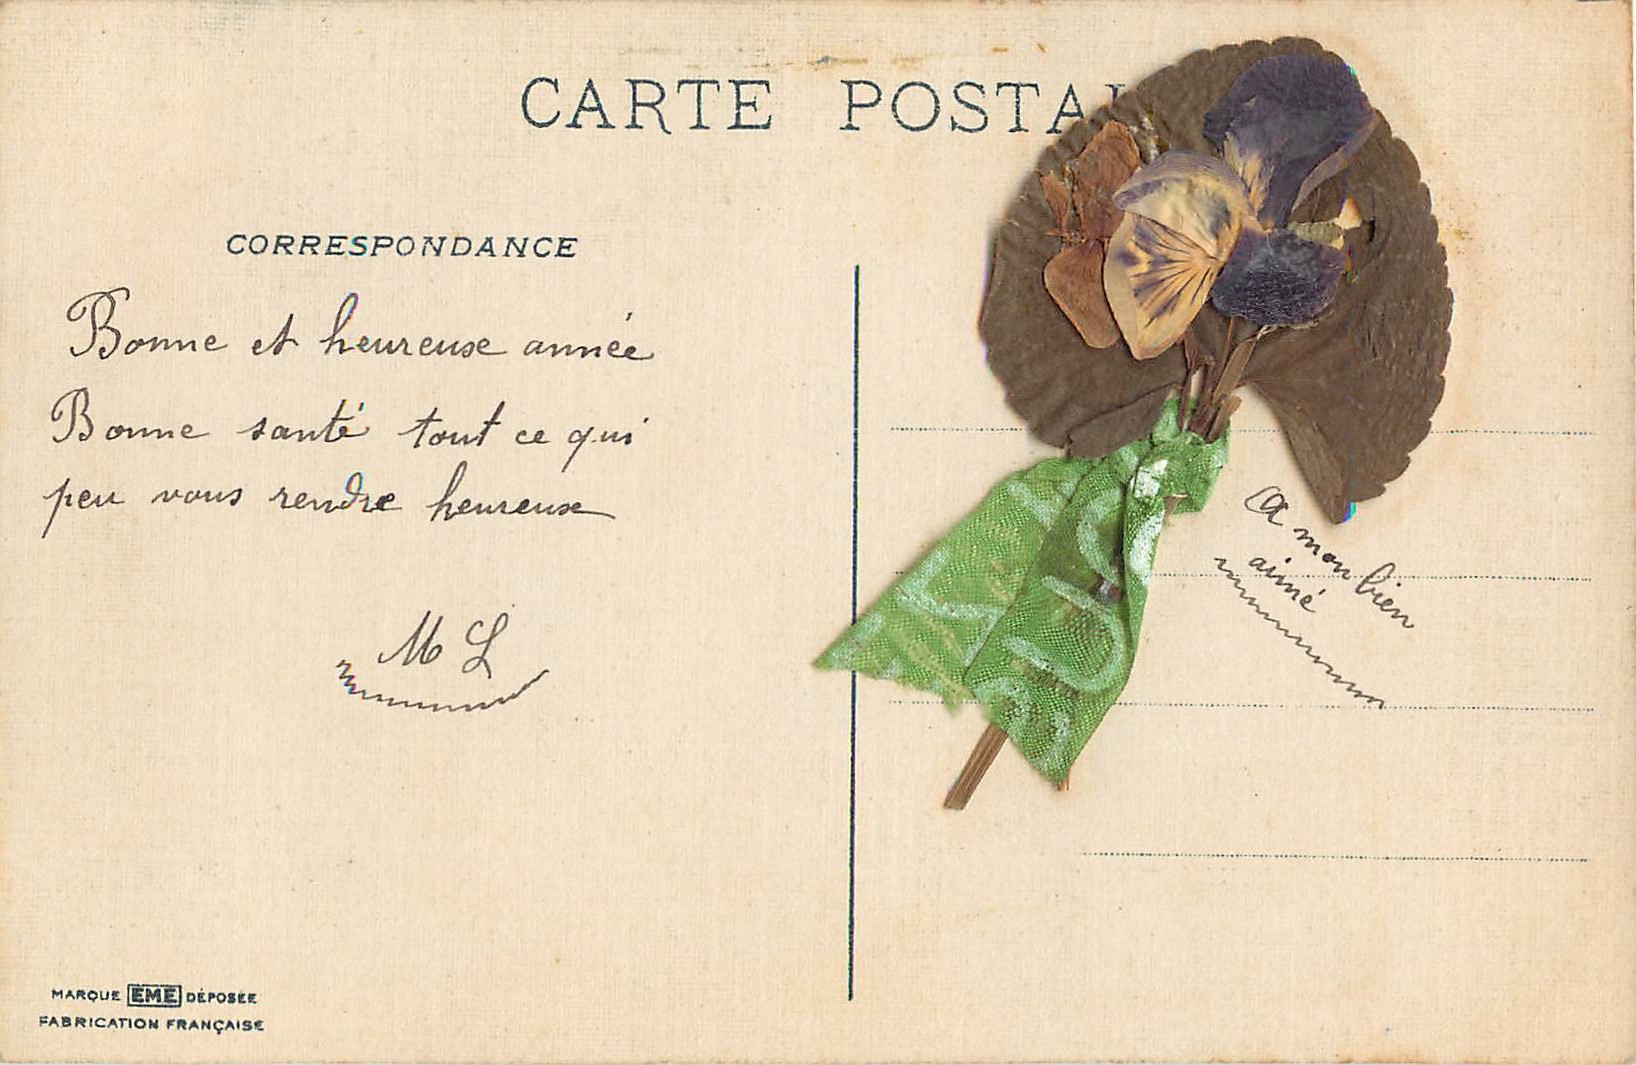 CARTE POSTAL
CORRESPONDANCE
Bonne et heureuse année
Bonne santé tout ce qui
peu vous rendre heureuse
M L
A mon bien
aimé
MARQUE EME DÉPOSÉE
FABRICATION FRANÇAISE